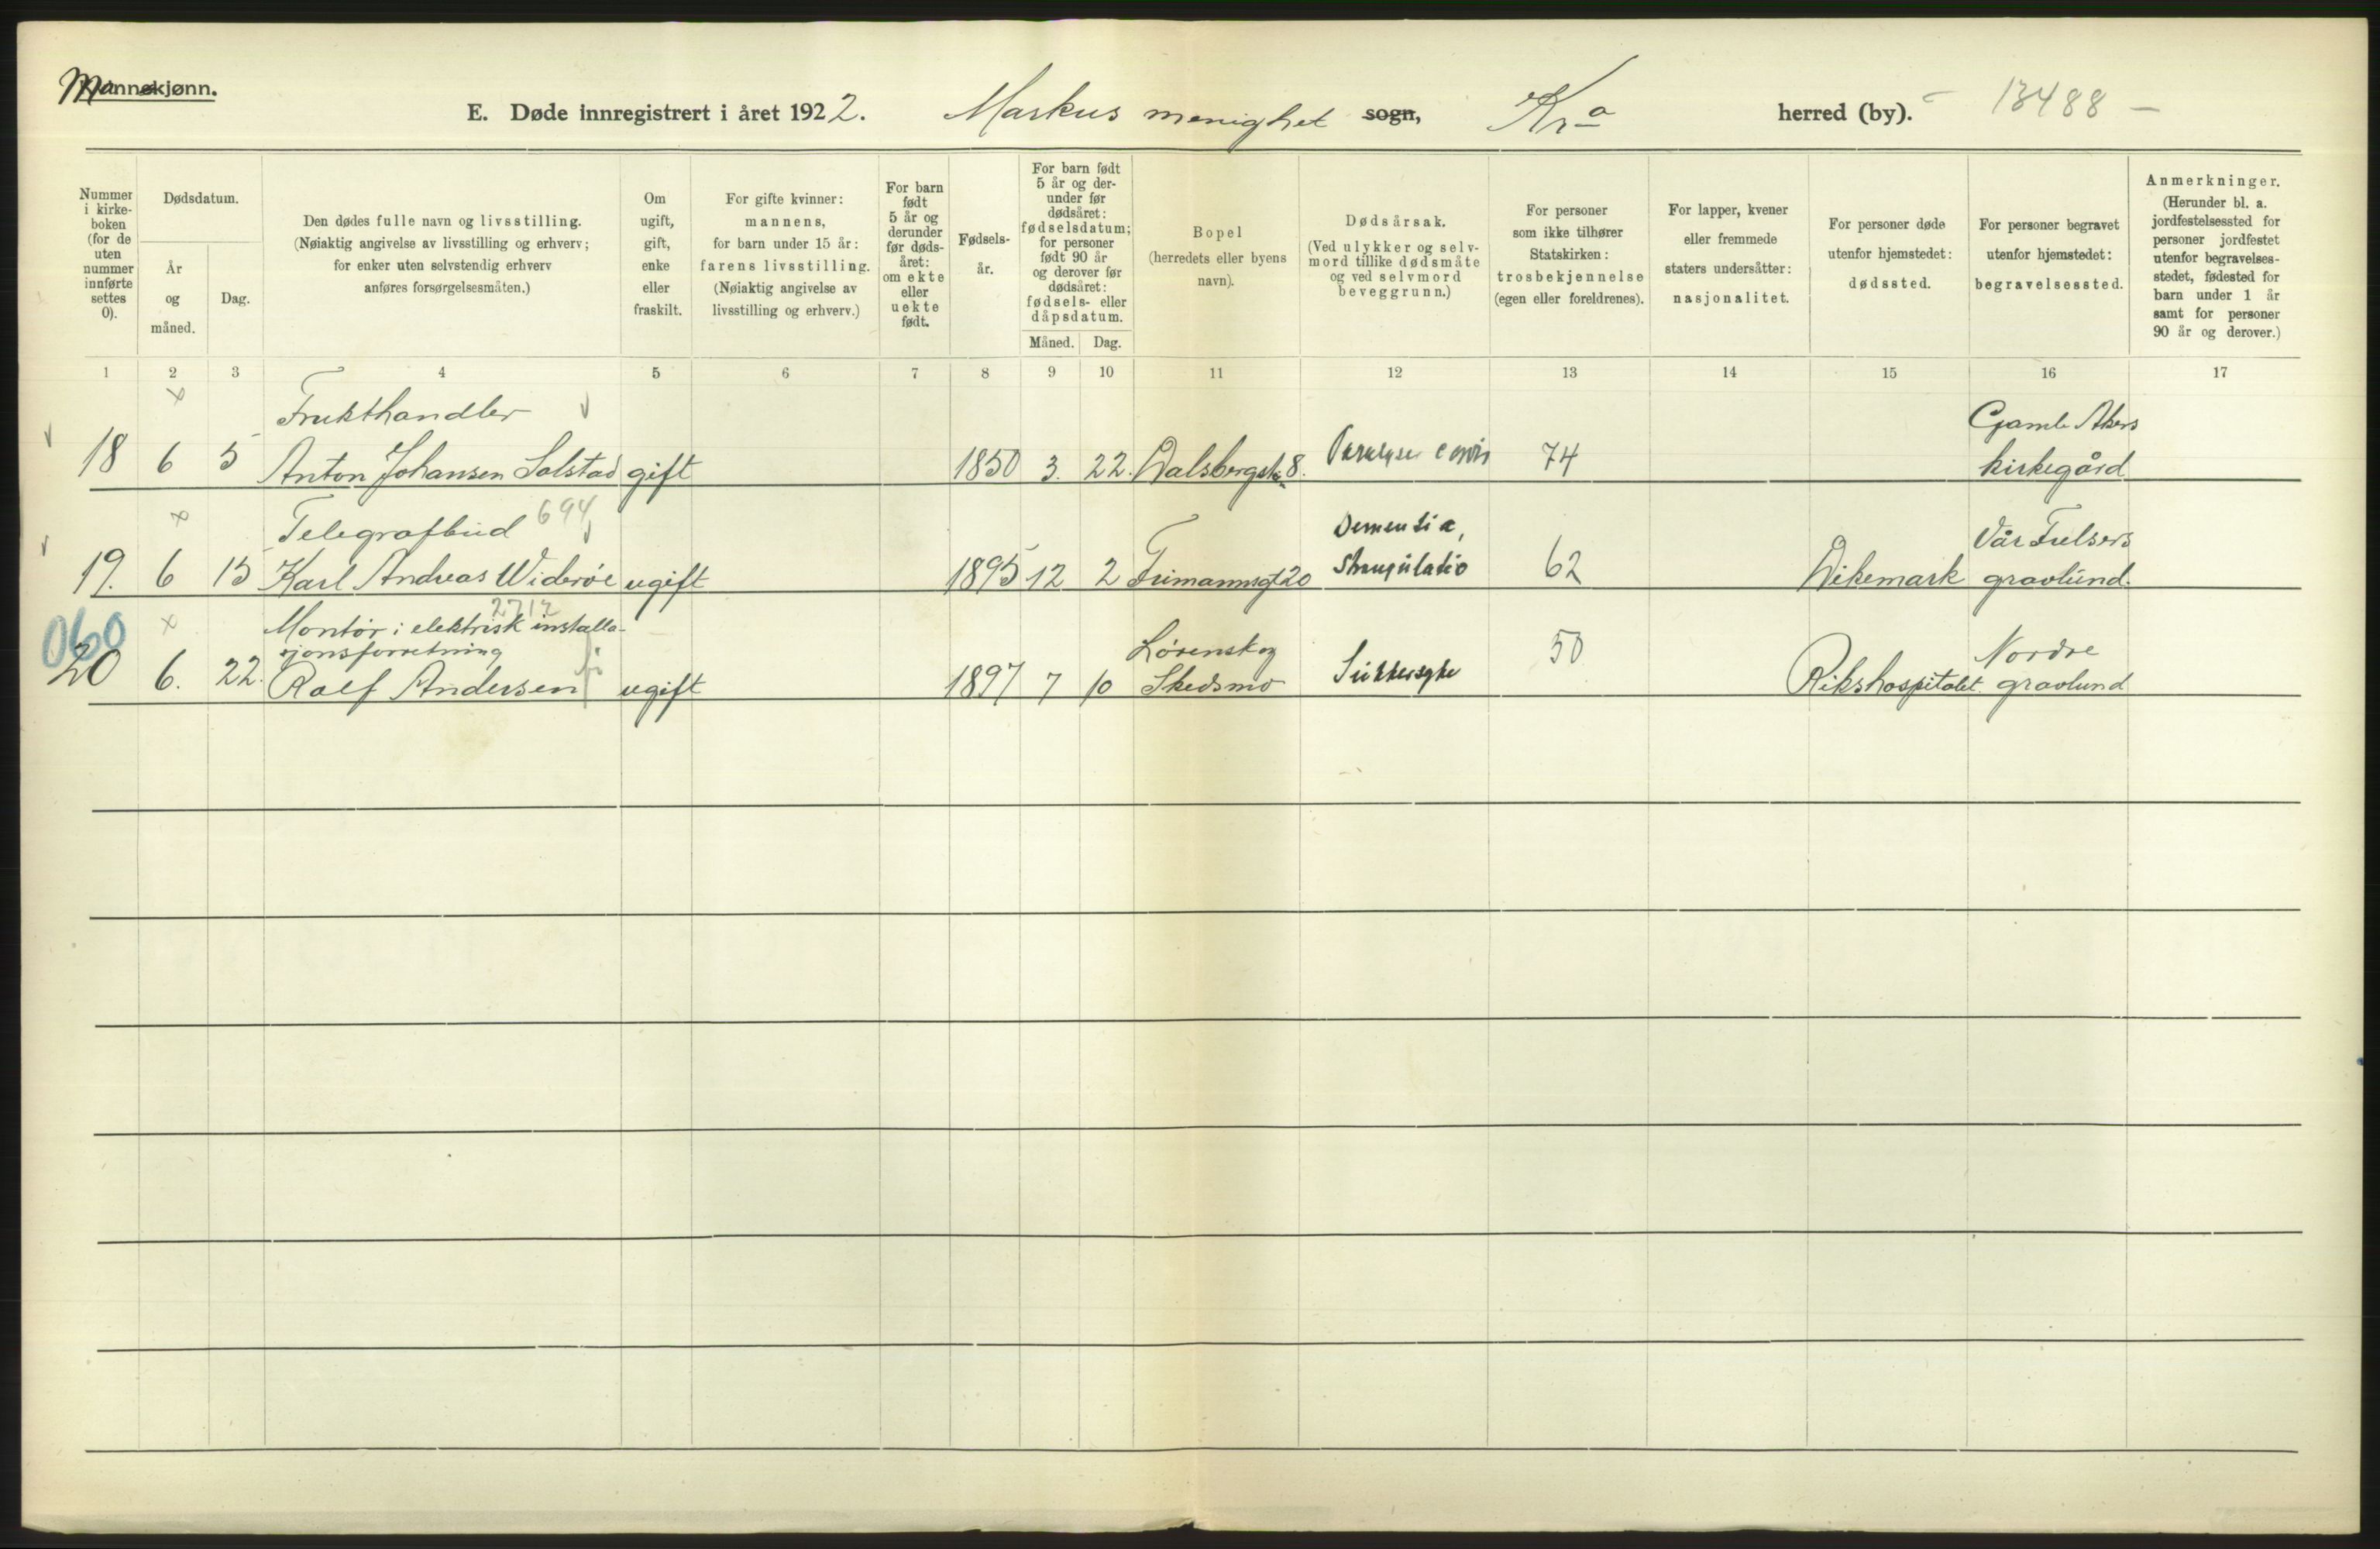 Mannkjønn.
E. Døde innregistrert i året 1922. Markus menighet sogn, Kra herred (by). 13488 —
Nummer i kirke-boken (for de uten nummer innførte settes 0).
Dødsdatum.
År og måned.
Dag.
Den dødes fulle navn og livsstilling.
(Nøiaktig angivelse av livsstilling og erhverv;
for enker uten selvstendig erhverv
anføres forsørgelsesmåten.)
Om
ugift,
gift,
enke
eller
fraskilt.
For gifte kvinner:
mannens,
for barn under 15 år:
farens livsstilling.
(Nøiaktig angivelse av
livsstilling og erhverv.)
For barn
født
5 år og
derunder
før døds-
året:
om ekte
eller
uekte
født.
Fødsels-
år.
For barn født
5 år og der-
under før
dødsåret:
fødselsdatum;
for personer
født 90 år
og derover før
dødsåret:
fødsels- eller
dåpsdatum.
Måned. Dag.
Bopel
(herredets eller byens
navn).
Dødsårsak.
(Ved ulykker og selv-
mord tillike dødsmåte
og ved selvmord
beveggrunn.)
For personer
som ikke tilhører
Statskirken:
trosbekjennelse
(egen eller foreldrenes).
For lapper, kvener
eller fremmede
staters undersåtter:
nasjonalitet.
For personer døde
utenfor hjemstedet:
dødssted.
For personer begravet
utenfor hjemstedet:
begravelsessted.
Anmerkninger.
(Herunder bl. a.
jordfestelsessted for
personer jordfestet
utenfor begravelses-
stedet, fødested for
barn under 1 år
samt for personer
90 år og derover.)
1 2 3 4 5 6 7 8 9 10 11 12 13 14 15 16 17
Frukthandler Gamle Akers
18 6 5 Anton Johansen Solstad gift 1850 3. 22. Dalsbergst. 8. 74 kirkegård
Telegrafbud 694 Dementia, Vår Frelsers
19. 6 15 Karl Andreas Widerøe ugift 1895 12 2 Frimannsgt 20 Strangulatio 62 Dikemark gravlund.
060 Montør i elektrisk installa- 2712
sjonsforretning Lørenskog 50 Nordre
20 6. 22. Rolf Andersen ugift 1897 7 10 Skedsmo Sukkersyke Rikshospitalet gravlund